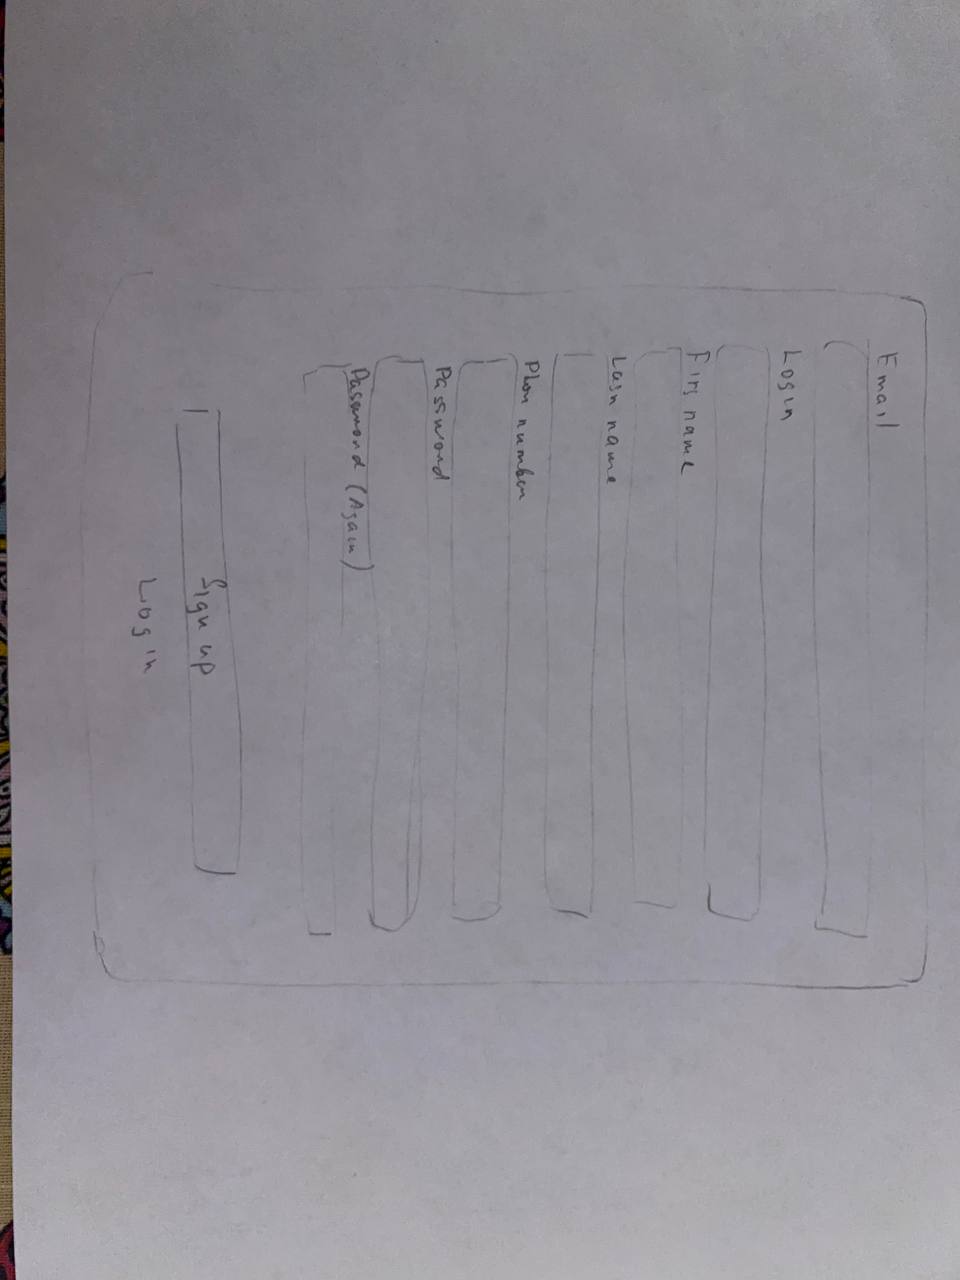 Email
Login
Firs name
Lasn name
Phon number
Password
Password (Again)
Sign up
Log in